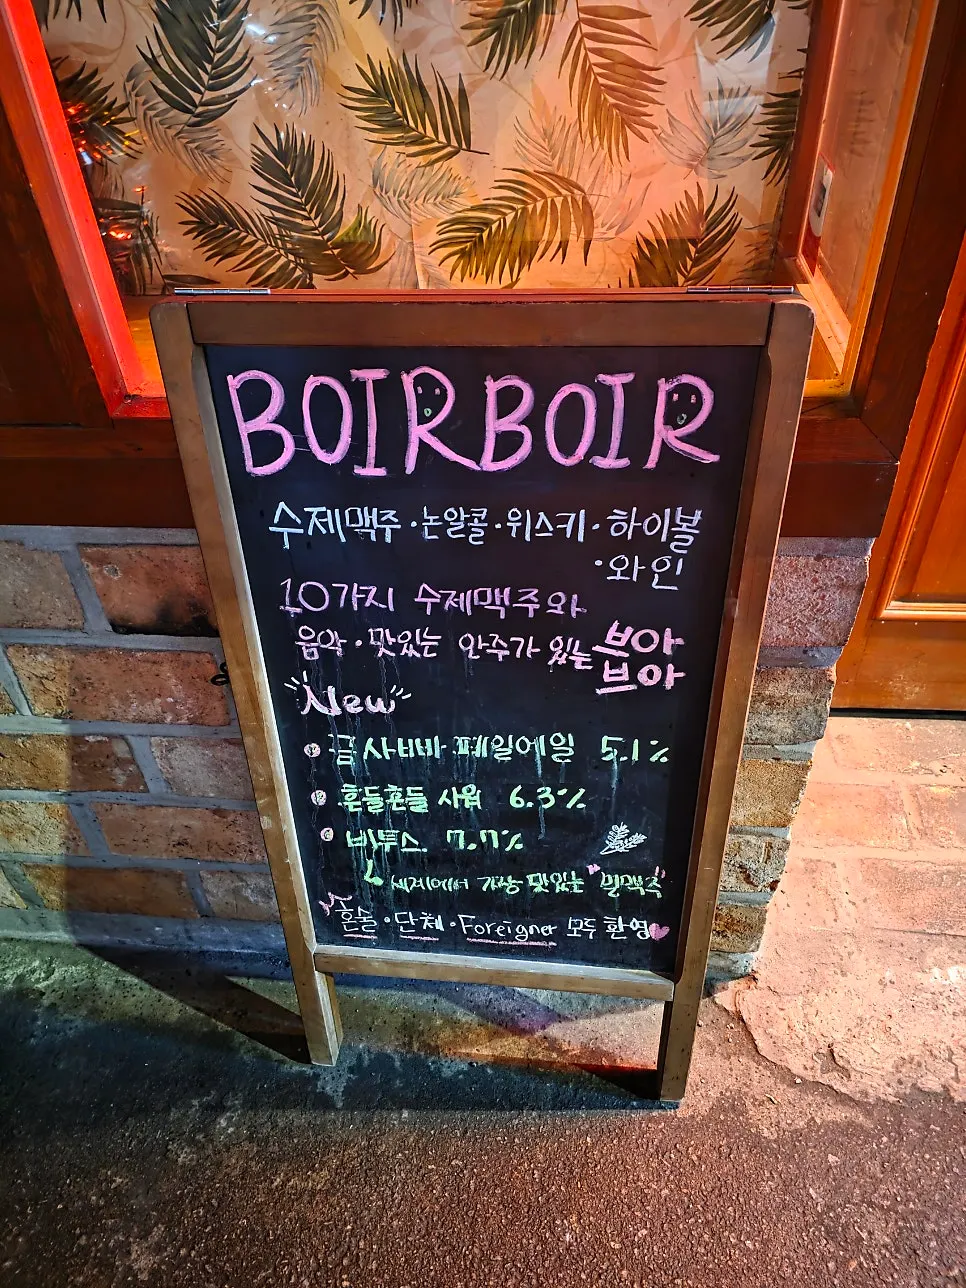 BOIRBOIR
수제맥주·논알콜·위스키·하이볼
·와인
10가지 수제맥주와
음악·맛있는 안주가 있는 브아
브아
New
금사빠바 페일에일 5.1%
흔들흔들 사워 6.3%
비투스 7.7%
세계에서 가장 맛있는 "밀맥주"
혼술·단체·Foreigner 모두 환영